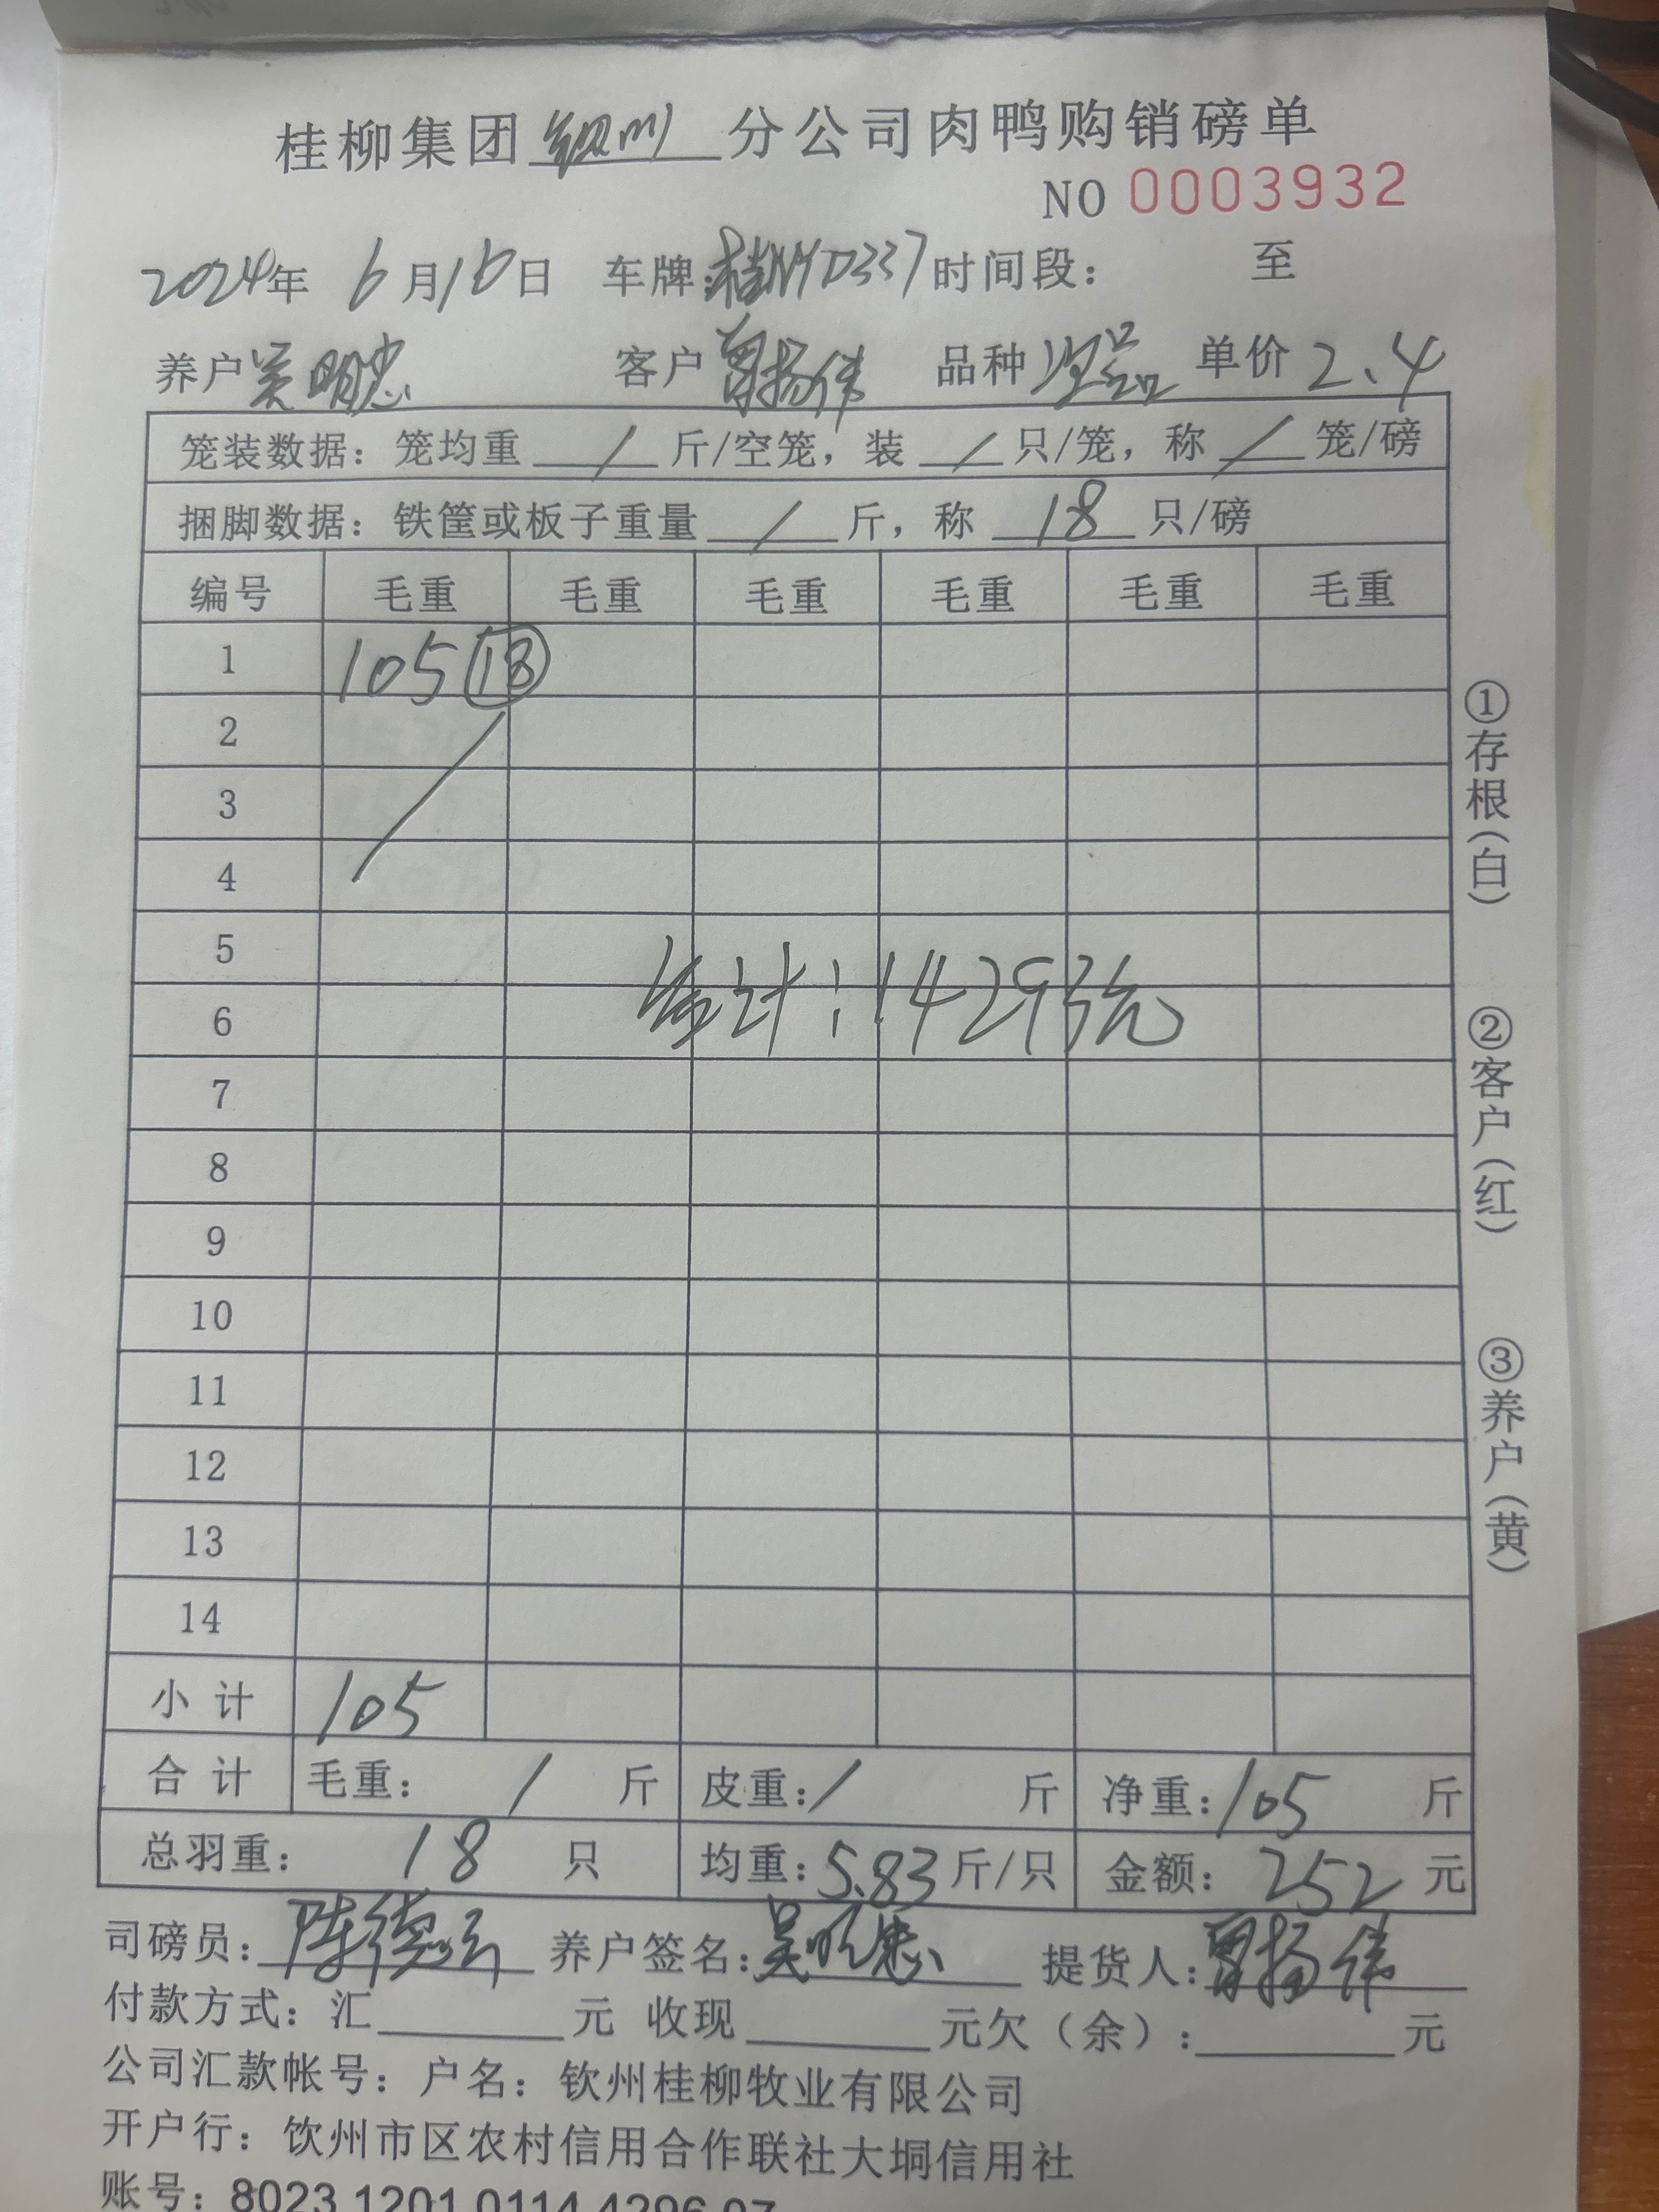 桂柳集团钦州分公司肉鸭购销磅单
NO 0003932
2024年 6月16日 车牌:桂NYD337 时间段: 至
养户 吴明忠 客户 曾扬伟 品种 单价 2.4
笼装数据：笼均重 / 斤/空笼，装 / 只/笼，称 / 笼/磅
捆脚数据：铁筐或板子重量 / 斤，称 18 只/磅
编号 毛重 毛重 毛重 毛重 毛重 毛重
1 105 ⑱
2
3
4
5
6 合计:14293元
7
8
9
10
11
12
13
14
小计 105
合计 毛重: / 斤 皮重: / 斤 净重:105 斤
总羽重: 18 只 均重:5.83斤/只 金额: 252 元
司磅员:陈德云 养户签名:吴明忠 提货人:曾扬伟
付款方式：汇 元 收现 元欠（余）: 元
公司汇款帐号：户名：钦州桂柳牧业有限公司
开户行：钦州市区农村信用合作联社大垌信用社
账号：8023 1201 0114 4296 07
①存根(白)
②客户(红)
③养户(黄)